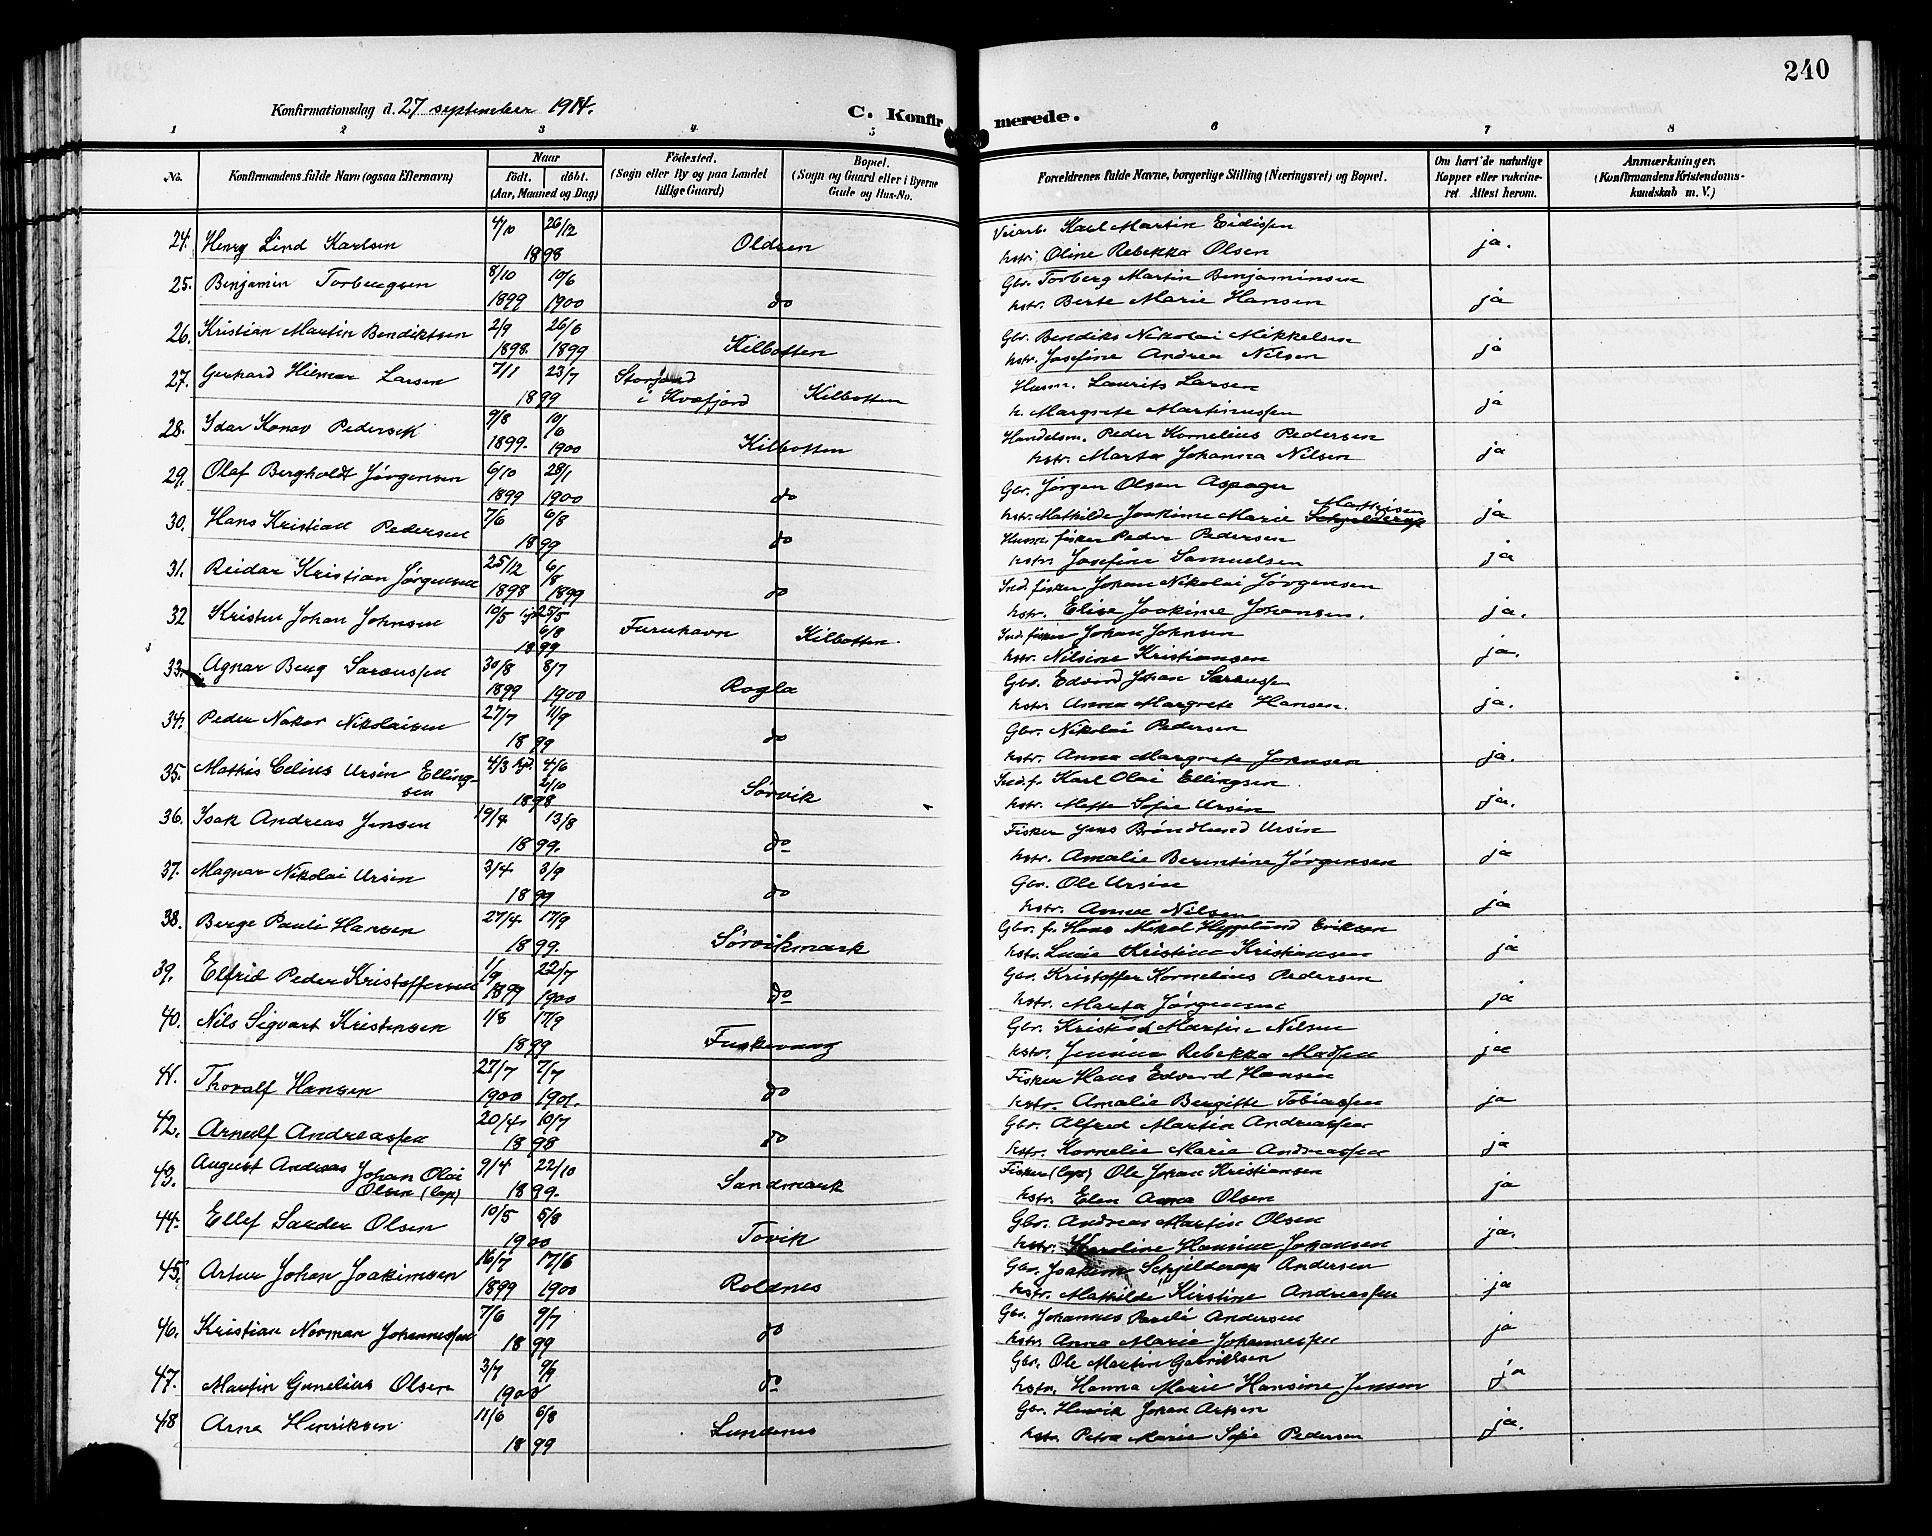 240
Konfirmationsdag d. 27 september 1914.
C. Konfirmerede.
1 2 3 4 5 6 7 8
No. Konfirmandens fulde Navn (ogsaa Efternavn) Naar Födt. döbt. (Aar, Maaned og Dag) Födested. (Sogn eller By og paa Landet tillige Gaard) Bopæl. (Sogn og Gaard eller i Byerne Gade og Hus-No. Forældrenes fulde Navne, borgerlige Stilling (Næringsvei) og Bopæl. Om havt de naturlige Kopper eller vakcineret Attest herom. Anmærkninger. (Konfirmandens Kristendomskundskab m. V.)
24. Henry Lind Karlsen 4/10 26/12 1898 Oldren Veiarb. Karl Martin Eidissen
hstr. Oline Rebekka Olsen ja.
25. Benjamin Torbergsen 8/10 1899 10/6 1900 do Gbr. Torberg Martin Benjaminsen
hstr. Berte Marie Hansen ja
26. Kristian Martin Bendiktsen 2/9 1898. 26/6 1899 Kilbotten Gbr. Bendiks Nikolai Mikkelsen
hstr. Josefine Andrea Nilsen ja
27. Gerhard Hilmar Larsen 7/1 23/7 1899 Storjord i Kvæfjord Kilbotten Husm. Laurits Larsen
h. Margrete Martinussen ja
28. Idar Konov Pedersen 9/8 1899. 10/6 1900 Kilbotten Handelsm. Peder Kornelius Pedersen
hstr. Marta Johanna Nilsen ja
29. Olaf Bergholdt Jørgensen 6/10 1899 28/1 1900 do Gbr. Jørgen Olsen Aspager
hstr. Mathilde Joakime Marie Mathisen ja
30. Hans Kristian Pedersen 7/6 6/8 1899 do Husm. fisker Peder Pedersen
hstr. Josefine Samuelsen ja
31. Reidar Kristian Jørgensen 25/12 1898 6/8 1899 do Ind. fisker Johan Nikolai Jørgensen
hstr. Elise Joakime Johansen. ja.
32 Kristen Johan Johnsen 10/5 hjd 25/5 6/8 1899 Furuhavn Kilbotten. Ind. fisker Johan Johnsen
hstr. Nilsine Kristiansen ja.
33. Agnar Berg Sarenssen 30/8 1899 8/7 1900 Rogla Gbr. Edvard Johan Sarenssen
hstr. Anna Margrete Hansen. ja.
34. Peder Nakor Nikolaisen 27/7 11/9 1899 do Gbr. Nikolai Pedersen
hstr. Anna Margrete Johnsen ja.
35. Mathis Celius Ursin Ellingsen 4/3 hjd. 4/6 2/10 1898 Sørvik Ind. f. Karl Olai Ellingsen
hstr. Mette Sofie Ursin ja.
36. Isak Andreas Jensen 19/4 13/8 1899. do Fisker Jens Brøndlund Ursin
hstr. Amalie Berentine Jørgensen ja
37. Magnar Nikolai Ursin 3/4 3/9 1899 do Gbr. Ole Ursin
hstr. Anna Nilsen ja
38. Berge Pauli Hansen 27/4 17/9 1899. Sørvikmark Gbr. fr. Hans Nikol Heggelund Eriksen
hstr. Lucie Kristine Kristiansen ja
39. Elfrid Peder Kristoffersen 1/9 1899 22/7 1900 do Gbr. Kristoffer Kornelius Pedersen
hstr. Marta Jørgensen ja
40. Nils Sigvart Kristensen 1/8 17/9 1899 Fuskevaag Gbr. Kristian Martin Nilsen
hstr. Jensine Rebekka Madsen ja
41. Thoralf Hansen 27/7 1900 7/7 1901. do Fisker Hans Edvard Hansen
hstr. Amalie Bergitte Tobiassen ja
42. Arnulf Andreassen 20/4 10/7 1898 do Gbr. Alfred Martin Andreassen
hstr. Kornelie Marie Andreassen ja
43. August Andreas Johan Olai Olsen (lap) 9/4 22/10 1899. Sandmark Fisker (lap) Ole Johan Kristiansen
hstr. Elen Anna Olsen ja
44. Ellef Sander Olsen 10/5 5/8 1900 Tovik Gbr. Andreas Martin Olsen
hstr. Karoline Hansine Johansen ja.
45. Artur Johan Joakimsen 16/7 1899 17/6 1900 Roldnes Gbr. Joakim Schjelderup Andersen
hstr. Mathilde Kirstine Andreassen ja
46. Kristian Norman Johannessen 7/6 9/7 1899 do Gbr. Johannes Pauli Andersen
hstr. Anna Marie Johannessen ja
47. Martin Gunelius Olsen 3/7 9/9 1900 do Gbr. Ole Martin Gabrielsen
hstr. Hanna Marie Hansine Jensen ja
48 Arne Henriksen 11/6 6/8 1899 Lundenes Gbr. Henrik Johan Artsen
hstr. Petra Marie Sofie Pedersen ja.